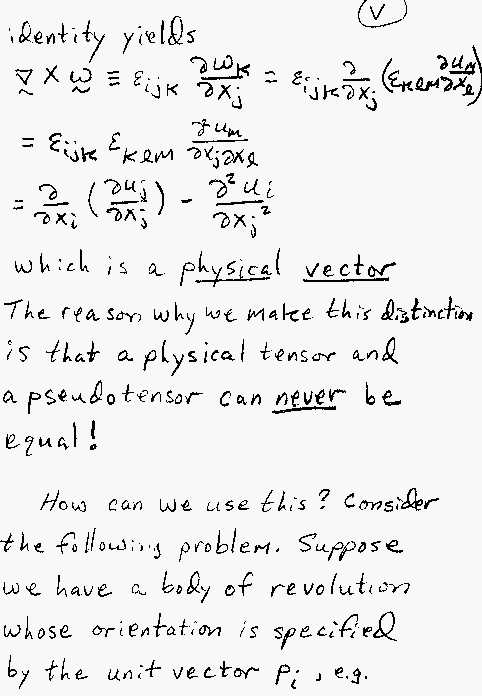 V
identity yields
∇ × ω ≡ ε_ijk ∂ω_k/∂x_j = ε_ijk ∂/∂x_j (ε_klm ∂u_m/∂x_l)
= ε_ijk ε_klm ∂²u_m/∂x_j∂x_l
= ∂/∂x_i (∂u_j/∂x_j) - ∂²u_i/∂x_j²
which is a physical vector
The reason why we make this distinction
is that a physical tensor and
a pseudotensor can never be
equal!
How can we use this? Consider
the following problem. Suppose
we have a body of revolution
whose orientation is specified
by the unit vector p_i, e.g.